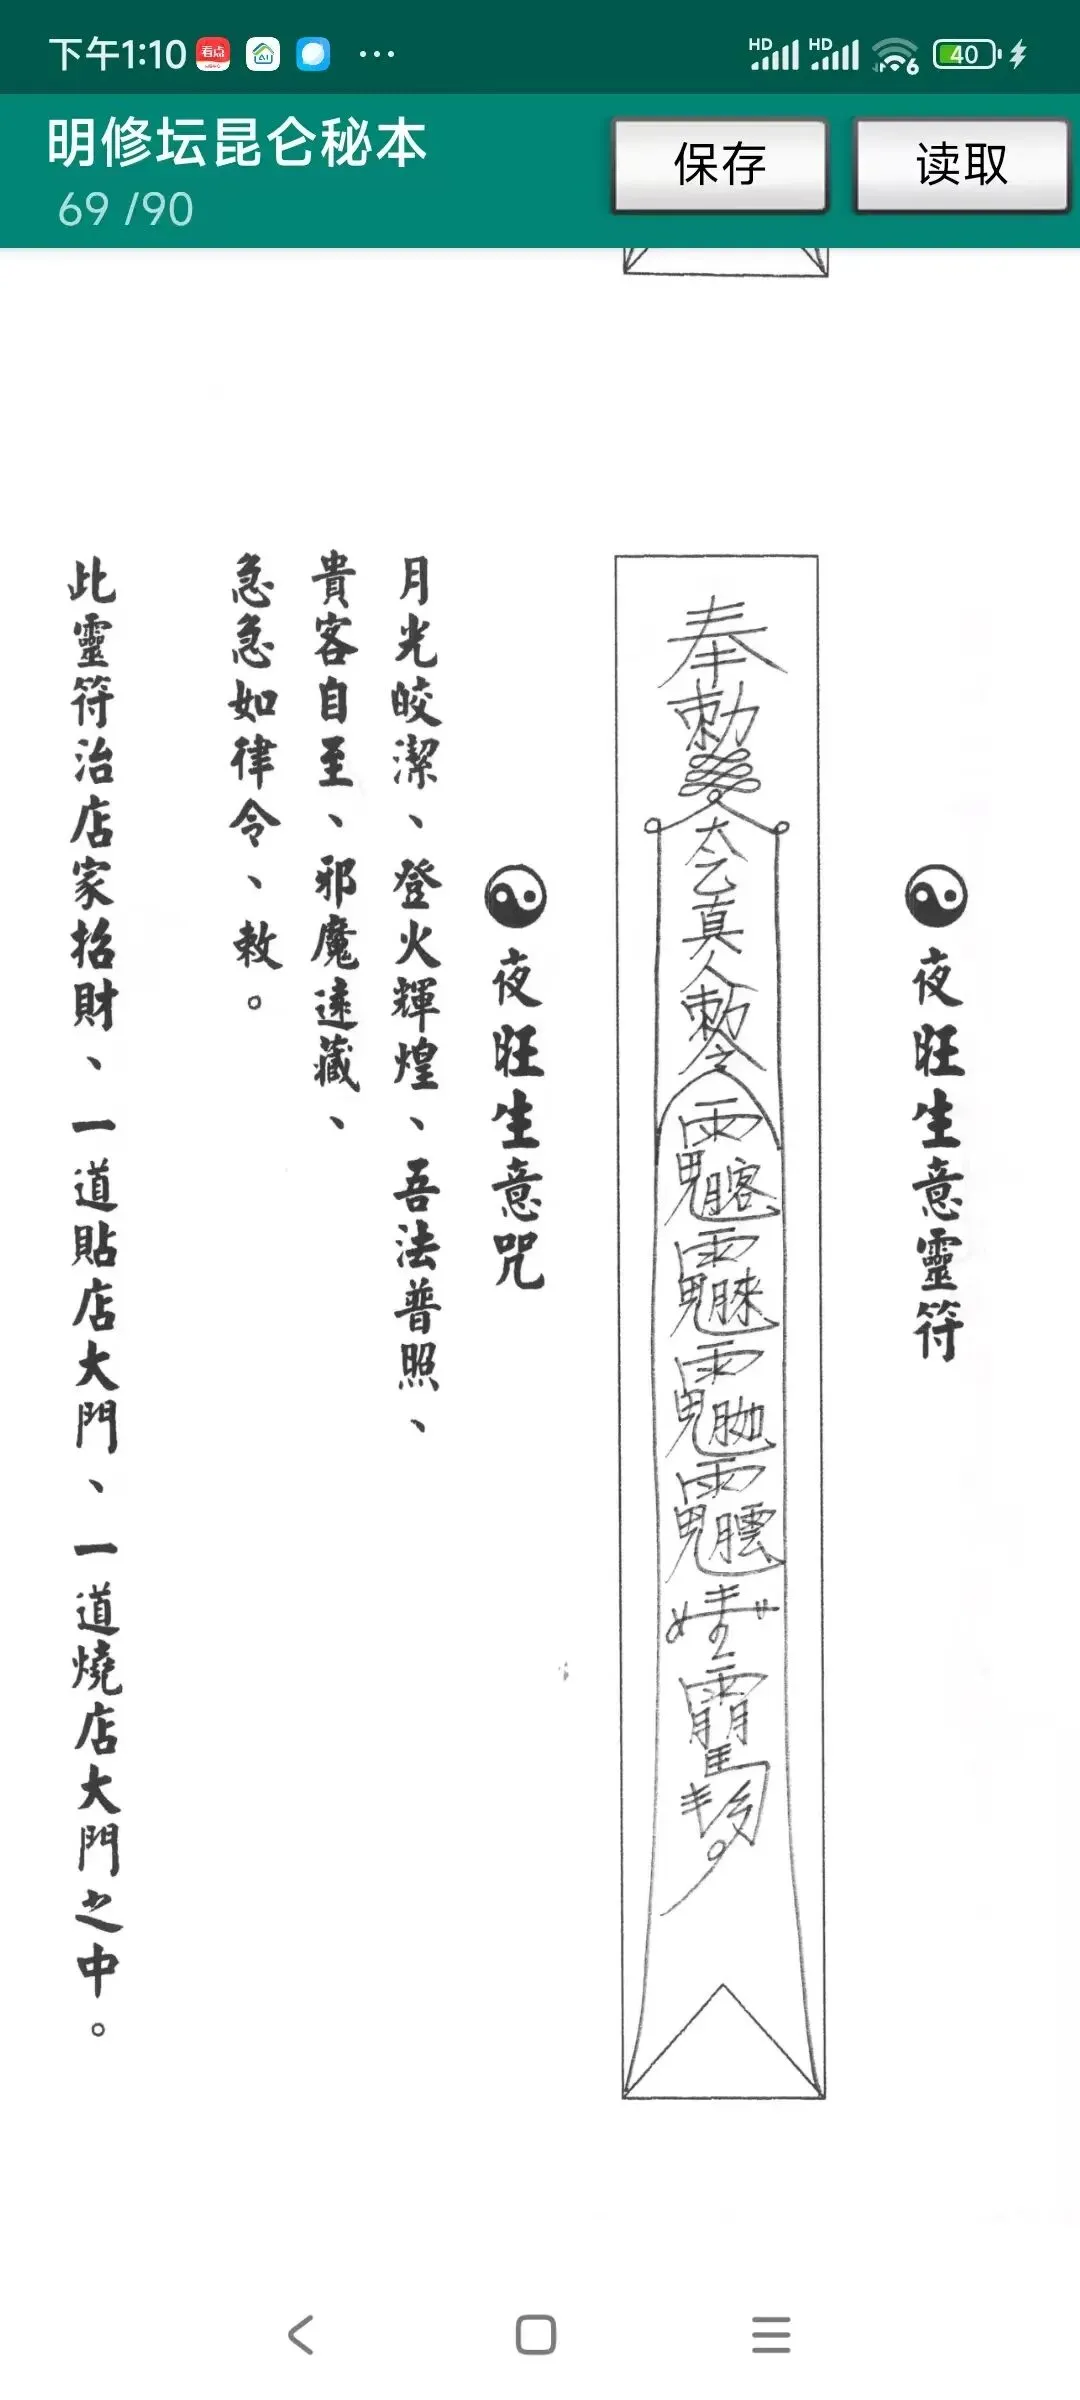 下午1:10
HD HD 6 40
看点
明修坛昆仑秘本
69 /90
保存
读取
夜旺生意靈符
奉
勅
太乙真人勅令
夜旺生意咒
月光皎潔、登火輝煌、吾法普照、
貴客自至、邪魔遠藏、
急急如律令、敕。
此靈符治店家招財、一道貼店大門、一道燒店大門之中。